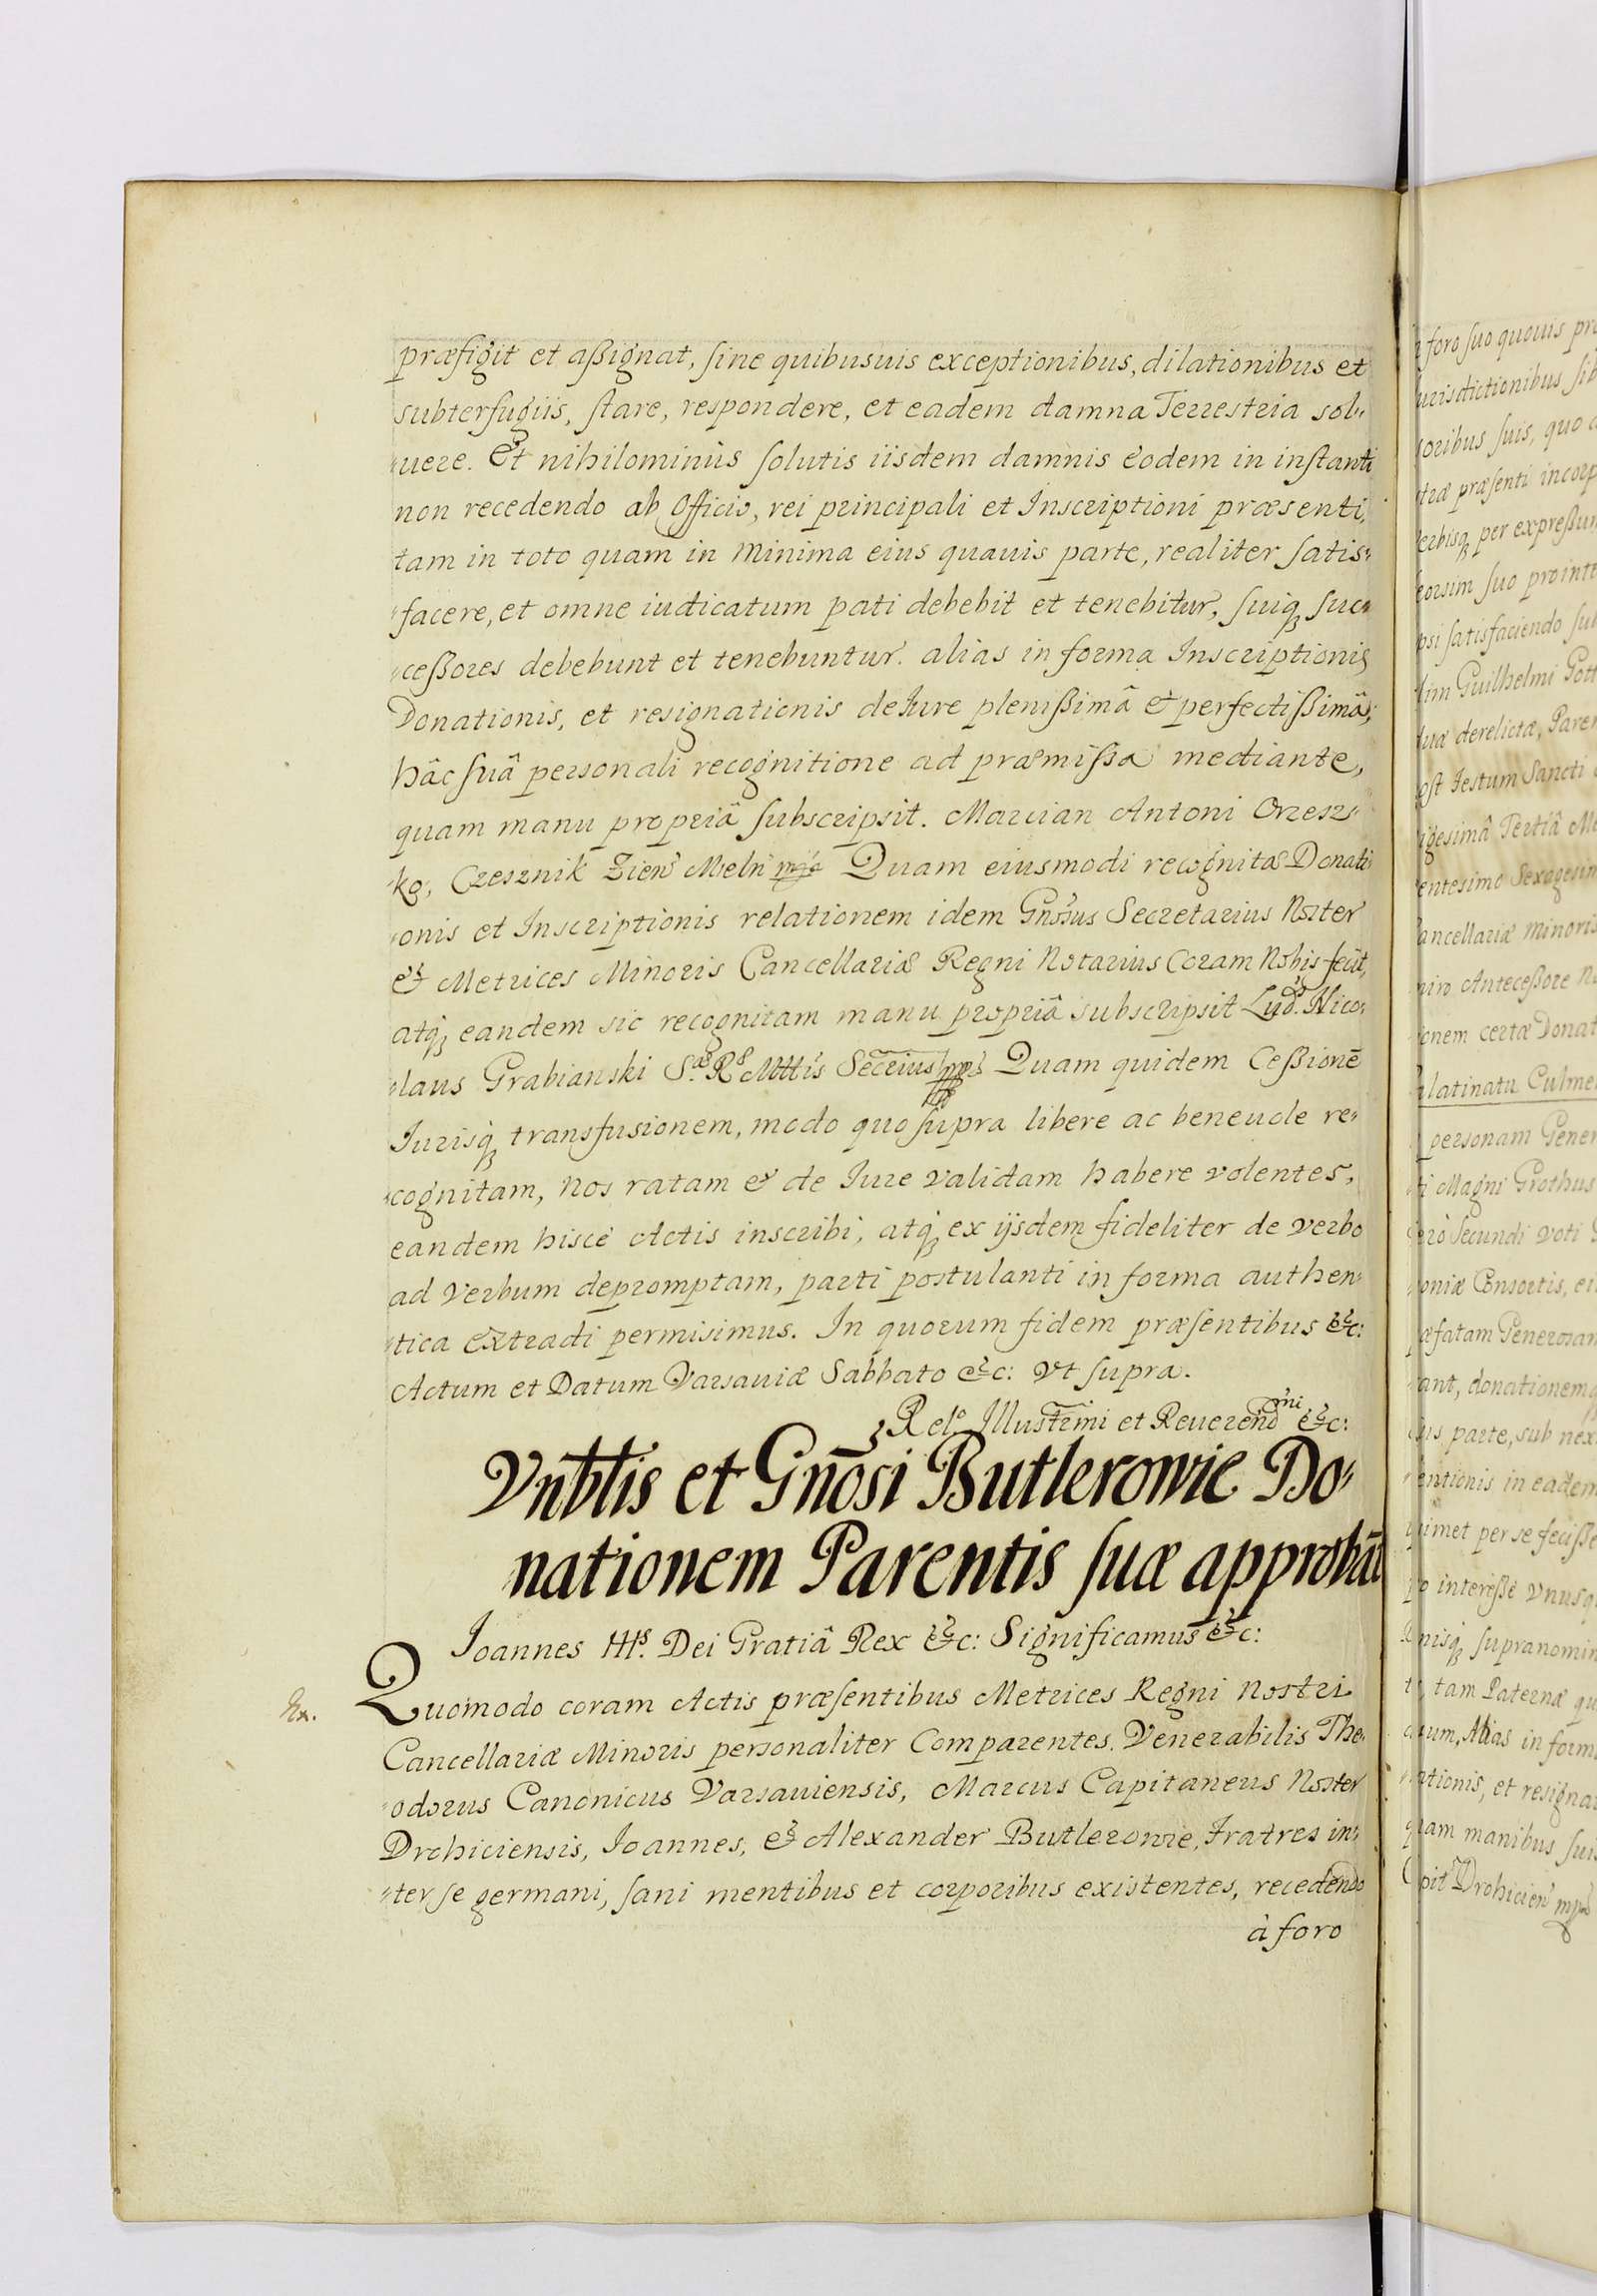 præfigit et aßignat, sine quibusuis exceptionibus, dilationibus et
subterfugiis, stare, respondere, et eadem damna Terrestria sol„
„uere. Et nihilominùs solutis iisdem damnis eodem in instanti
non recedendo ab Officio, rei principali et Inscriptioni præsenti,
tam in toto quam in minima eius quauis parte, realiter satis„
„facere, et omne iudicatum pati debebit et tenebitur, suiq suc„
„ceßores debebunt et tenebuntur. alias in forma Inscriptionis
Donationis, et resignationis de Iure plenißimâ et perfectißimâ,
hâc suâ personali recognitione ad præmissa mediante,
quam manu propriâ subscripsit. Marcian Antoni Orzesz„
„ko, Czesznik Ziem Mieln mp Quam eiusmodi recognitæ Donati
„onis et Inscriptionis relationem idem Gnosus Secretarius Noster
et Metrices Minoris Cancellariæ Regni Notarius Coram Nobis fecit,
atq eandem sic recognitam manu propriâ subscripsit Lud: Nico„
„laus Grabianski S. R. Mttis Secrius mp Quam quidem Ceßionē
Iurisq transfusionem, modo quo supra libere ac beneuole re„
„cognitam, Nos ratam & de Iure validam habere volentes,
eandem hisce Actis inscribi, atq ex ijsdem fideliter de verbo
ad Verbum depromptam, parti postulanti in forma authen„
„tica extradi permisimus. In quorum fidem præsentibus &c:
Actum et Datum Varsauiæ Sabbato &c: Vt supra.
Relo Illustrmi et Reuerendmi &c:
Vnbtlis et Gnosi Butlerowie Do„
nationem Parentis suæ approbāt
Ioannes IIIs. Dei Gratiâ Rex &c: Significamus &c:
Quomodo coram Actis præsentibus Metrices Regni Nostri
Cancellariæ Minoris personaliter Comparentes. Venerabilis The„
„odorus Canonicus Varsauiensis, Marcus Capitaneus Noster
Drohiciensis, Ioannes, & Alexander Butlerowie, Fratres in„
„ter se germani, sani mentibus et corporibus existentes, recedendo
à foro
foro suo quouis
jurisdictionibus
soribus suis, quo
præsenti
per expreßum
seorsim suo
satisfaciendo
Guilhelmi
derelictæ,
Festum Sancti
Tertiâ
ancellariæ Minoris
Anteceßore
certæ
latinatu
personam
Magni Grothus
Secundi Voti
Consortis,
donationem
parte, sub
in eadem
met per se
intereße
supranomin
tam Paternæ
Alias in
et
manibus
Drohicien mp